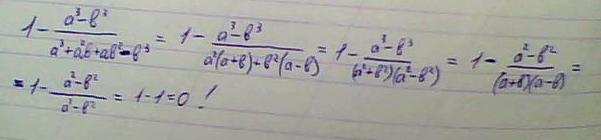 1 - \frac{a^3-b^2}{a^3+a^2b+ab^2-b^3} = 1 - \frac{a^3-b^3}{a^2(a+b)+b^2(a-b)} = 1 - \frac{a^3-b^3}{(a^2+b^2)(a^2-b^2)} = 1 - \frac{a^2-b^2}{(a+b)(a-b)} =
= 1 - \frac{a^2-b^2}{a^2-b^2} = 1-1=0 !